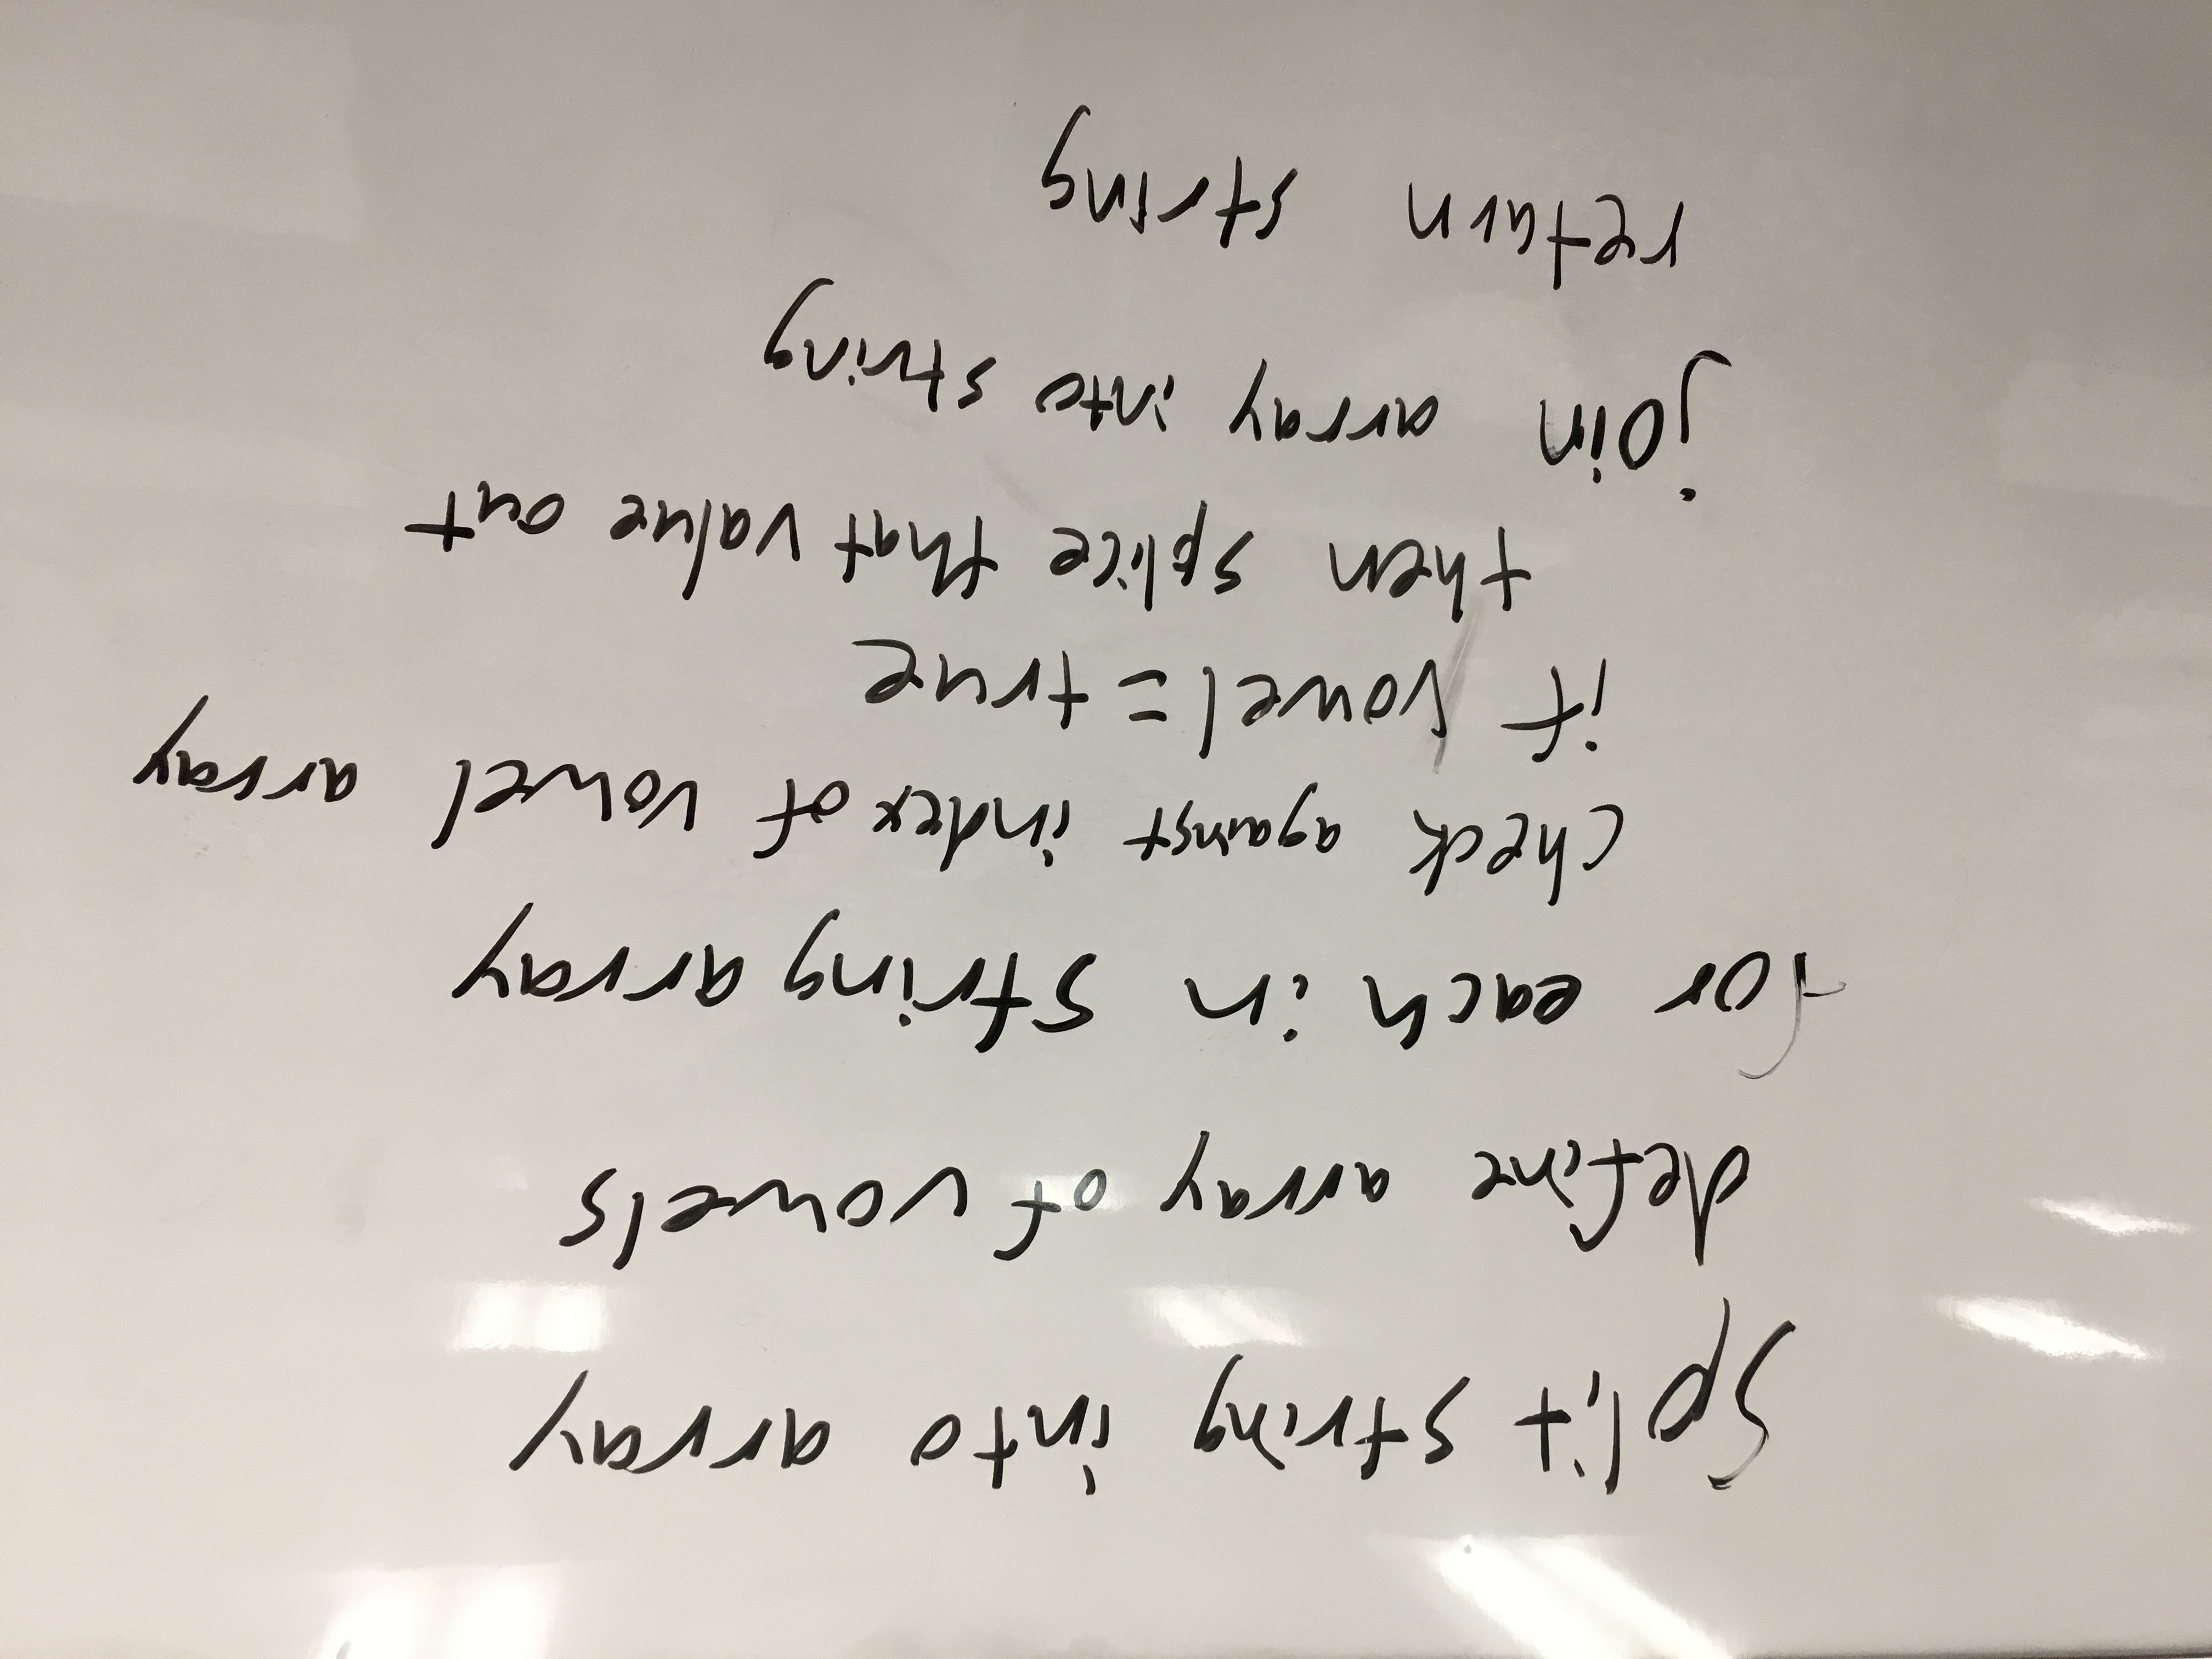 Split string into array
define array of vowels
for each in string array
check against index of vowel array
if vowel = true
then splice that value out
join array into string
return string